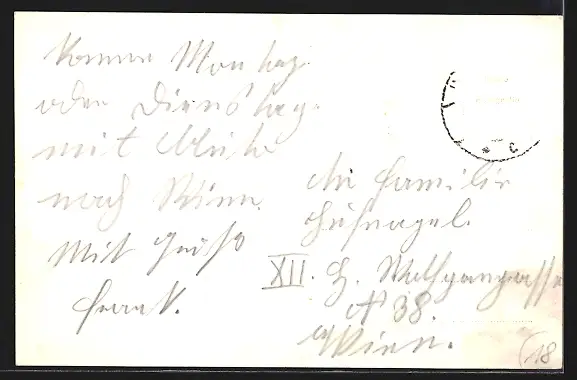 Komme Montag
oder Dienstag
mit Auto
nach Wien.
Mit Gruß
Frank.
An Familie
Hufnagel.
XII. H. Wolfganggasse
N 38.
Wien.
(18